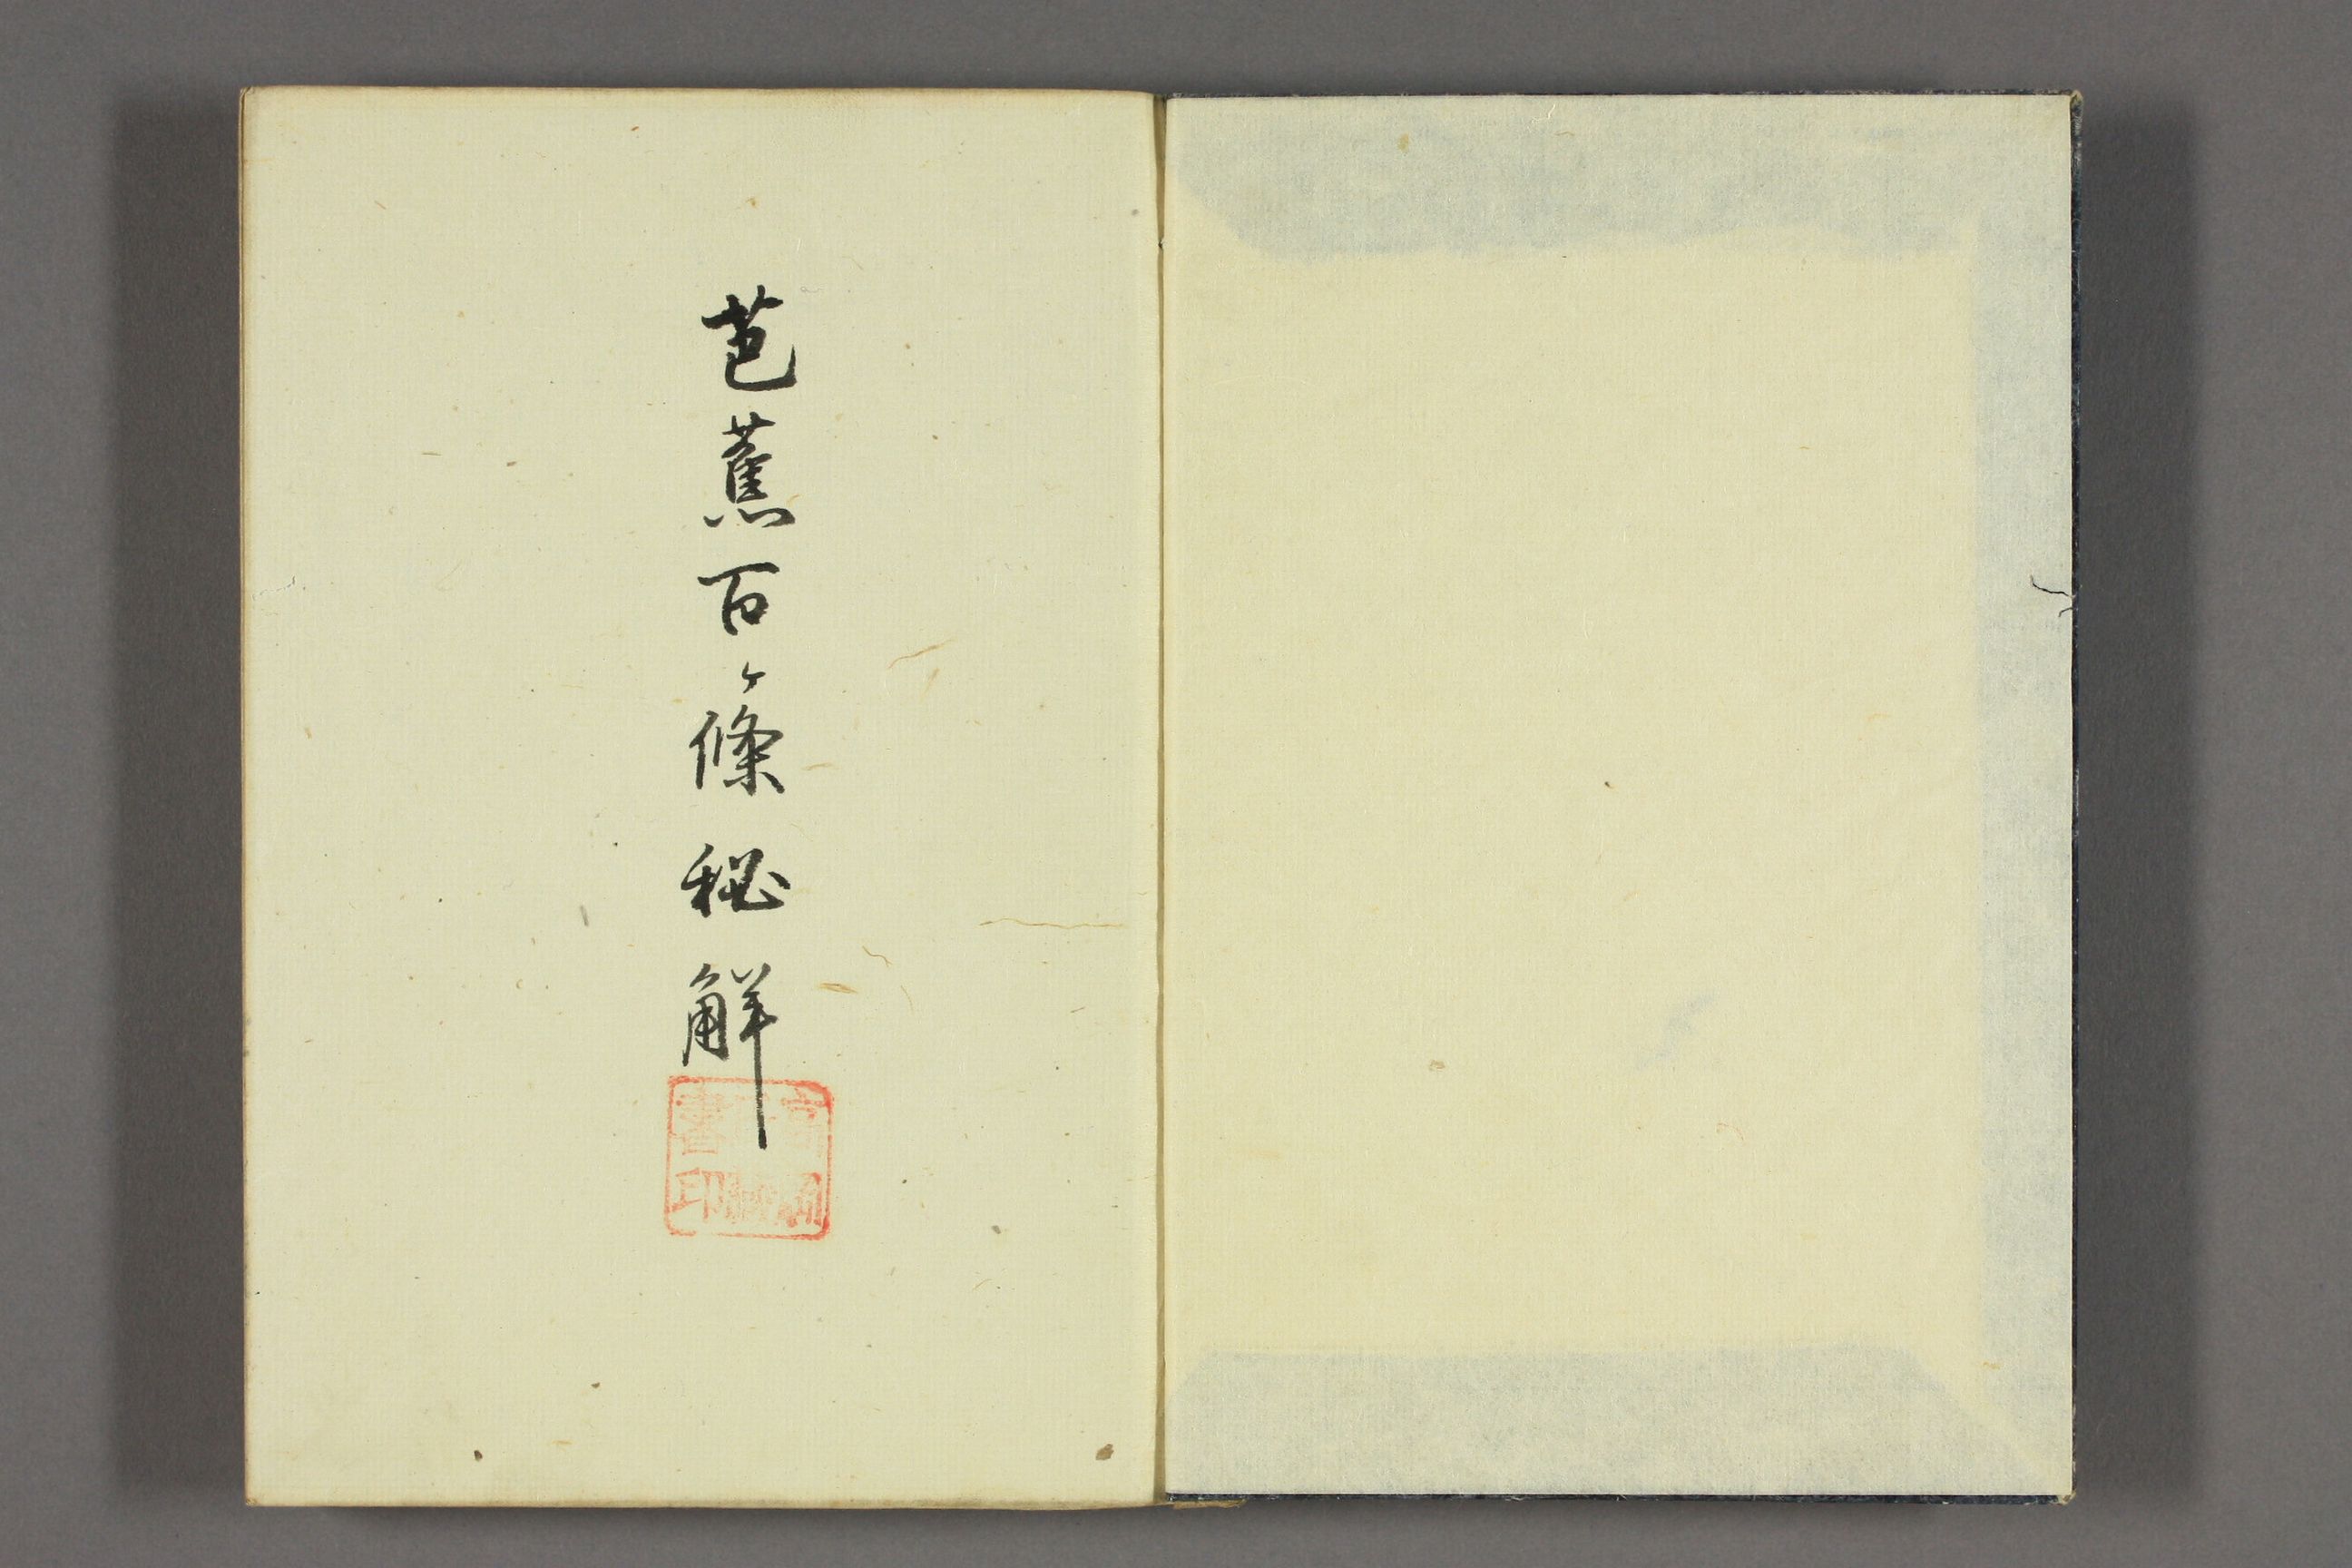 芭蕉百ヶ條秘解
書印